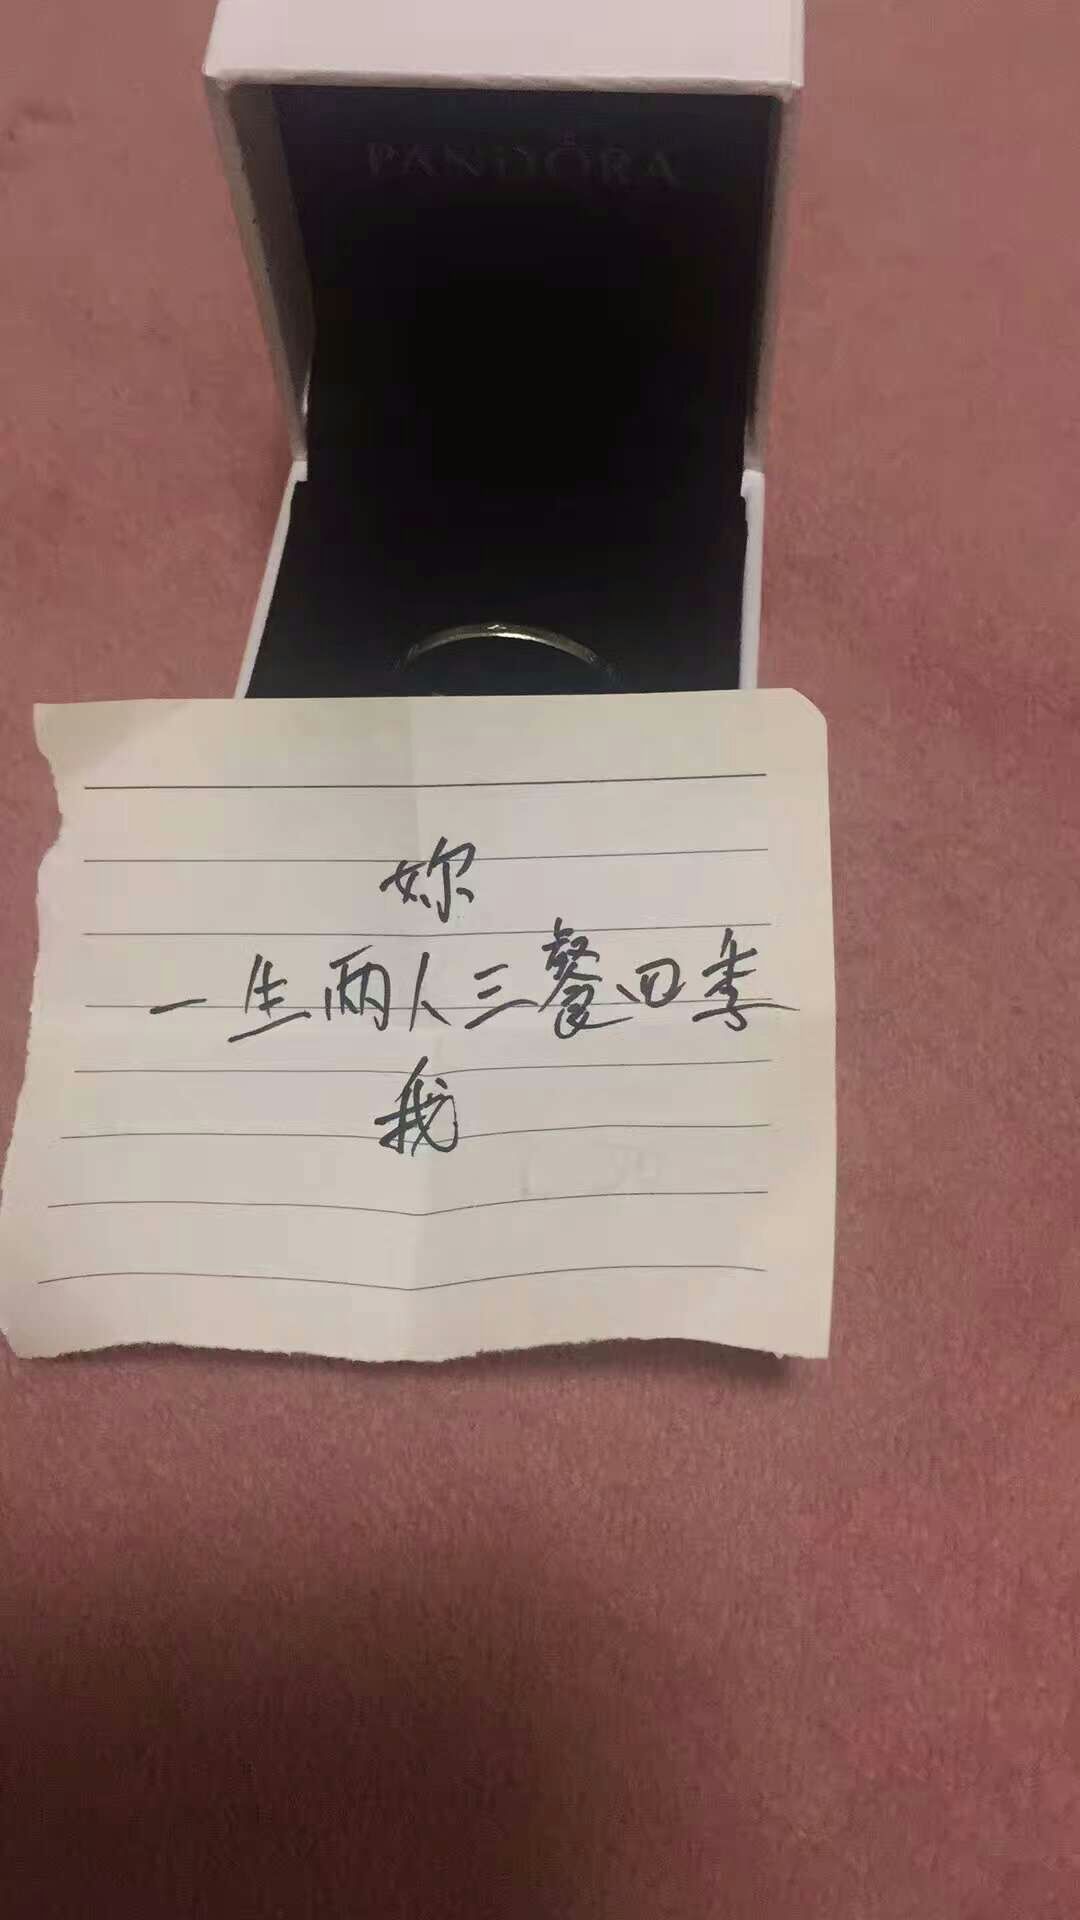 PANDORA
妳
一生两人三餐四季
我